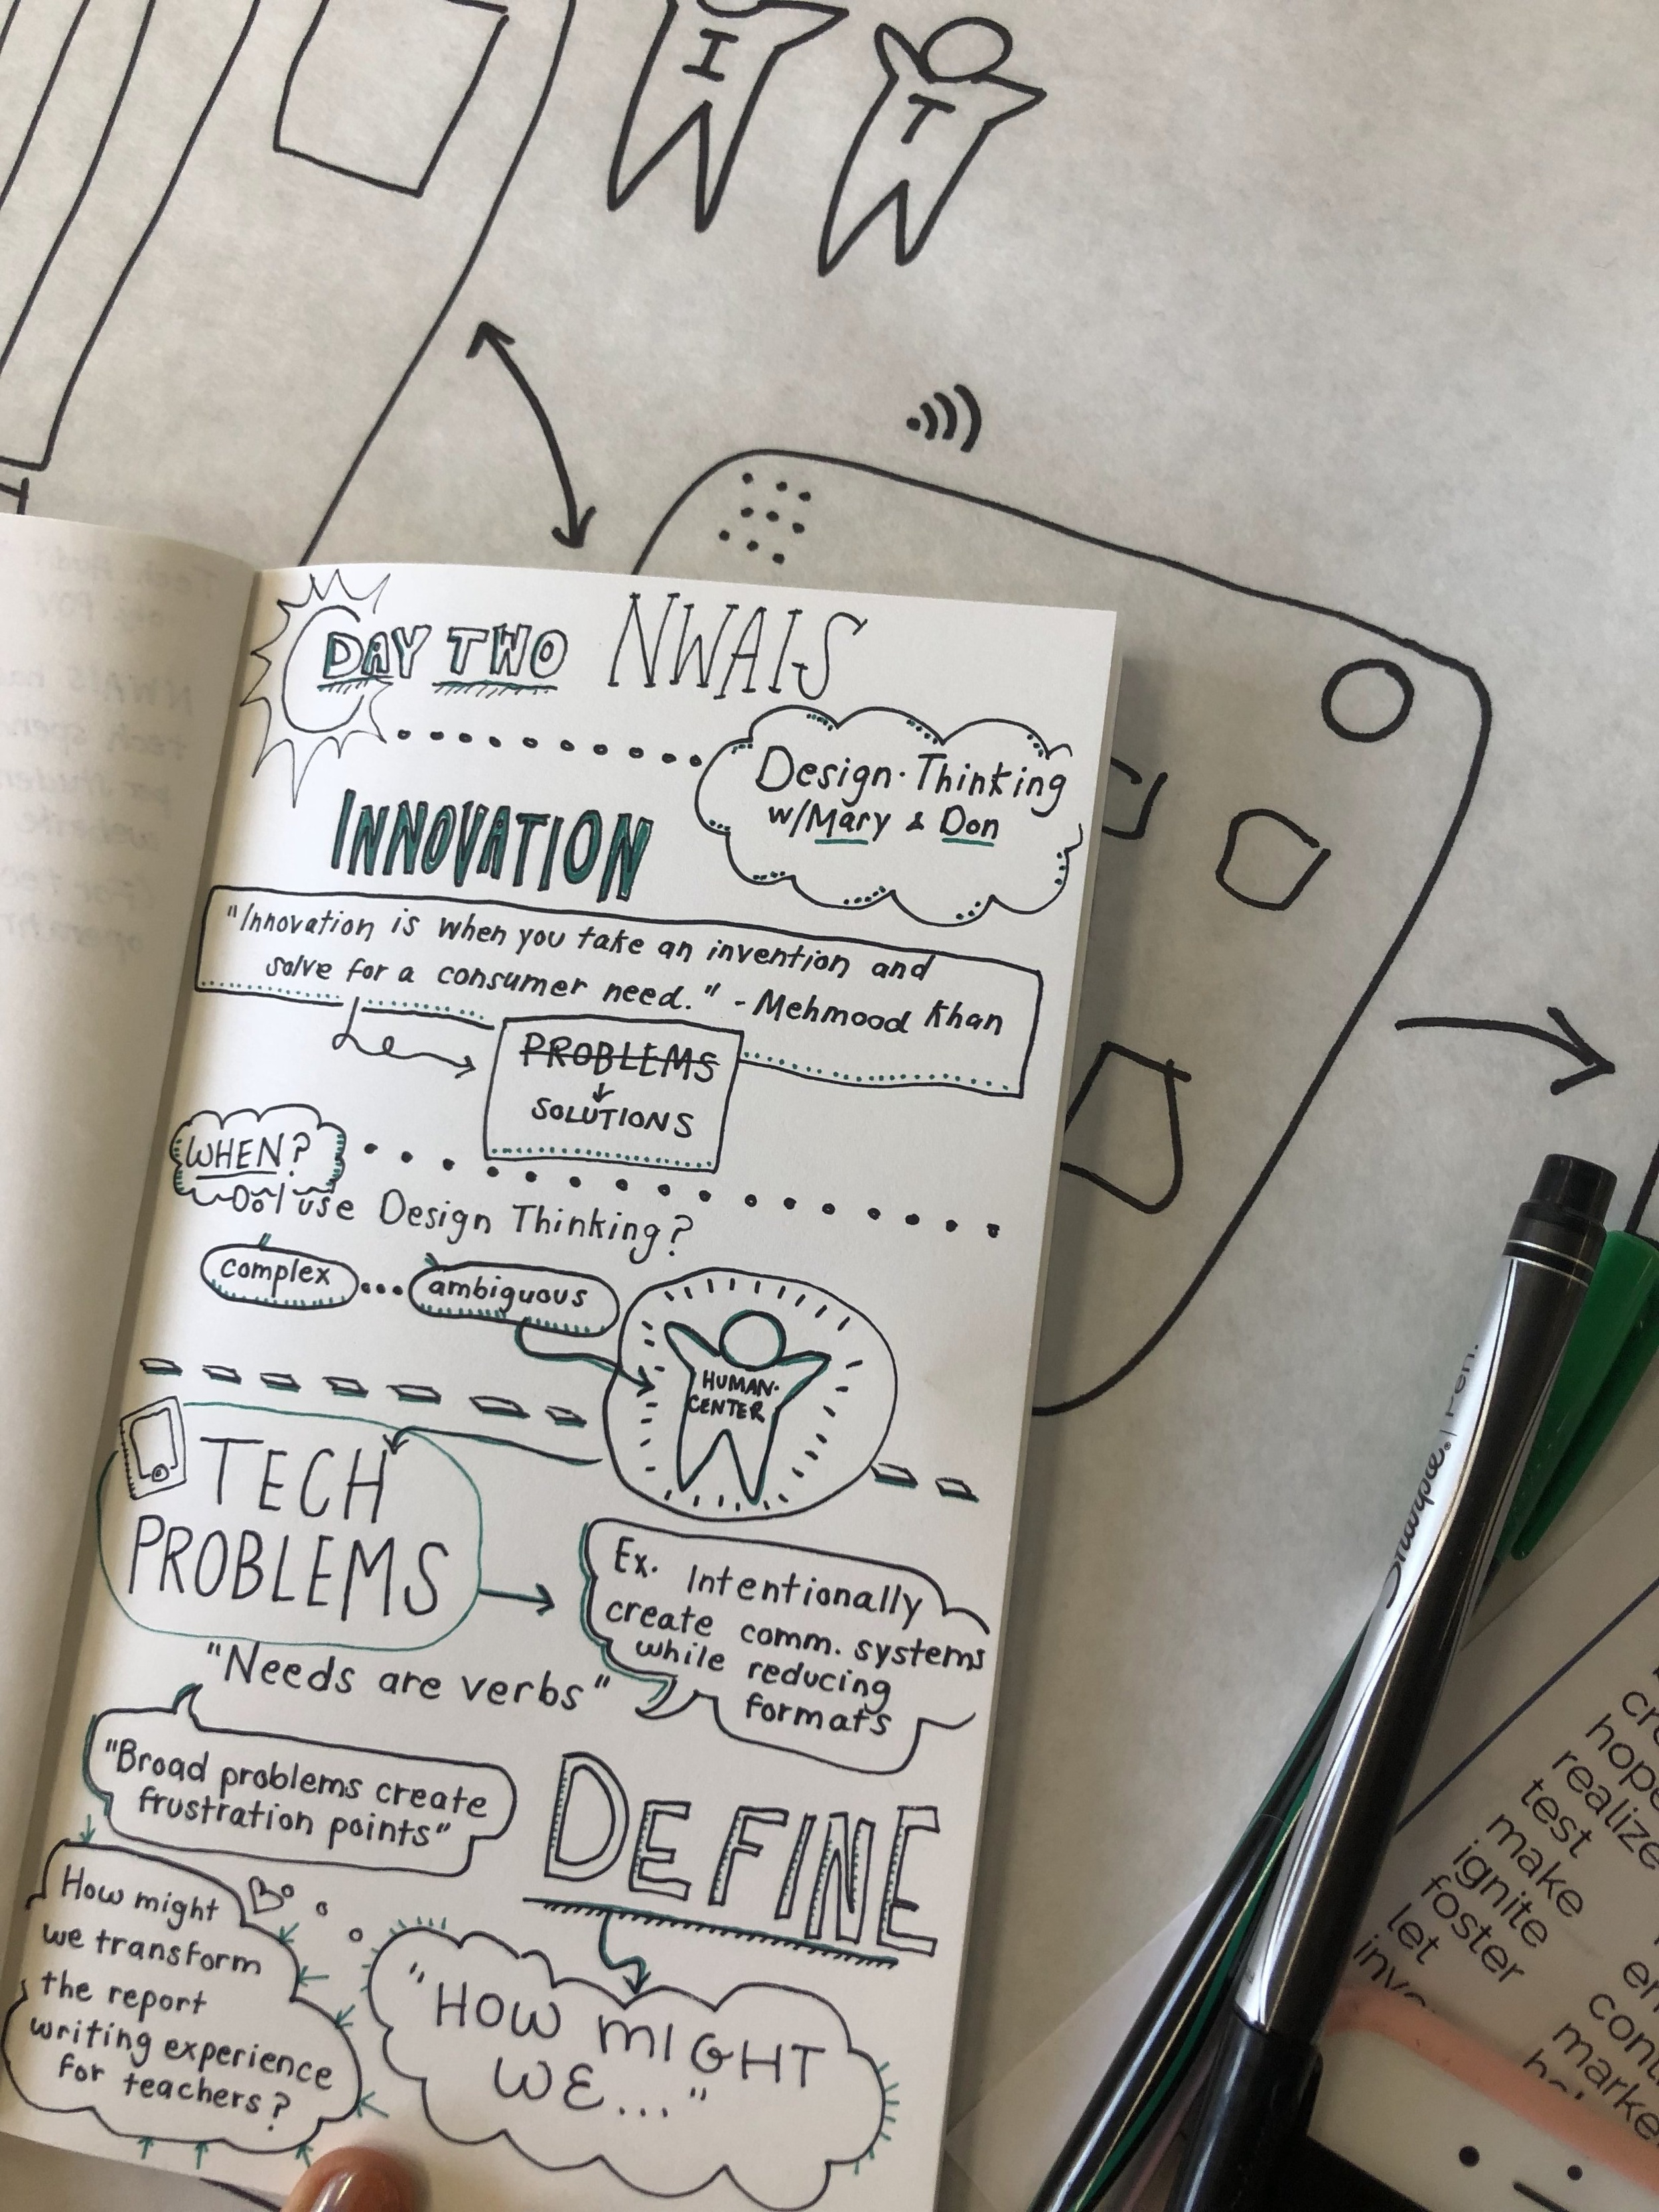 I
T
DAY TWO NWAIS
Design·Thinking
w/Mary & Don
INNOVATION
"Innovation is when you take an invention and
solve for a consumer need." - Mehmood Khan
PROBLEMS
SOLUTIONS
WHEN?
Do I use Design Thinking?
complex...ambiguous
HUMAN-
CENTER
TECH
PROBLEMS
Ex. Intentionally
create comm. systems
while reducing
formats
"Needs are verbs"
"Broad problems create
frustration points"
DEFINE
How might
we transform
the report
writing experience
for teachers?
"HOW MIGHT
WE..."
Sharpie. Pen.
hope
realize
test
make
ignite
foster
let